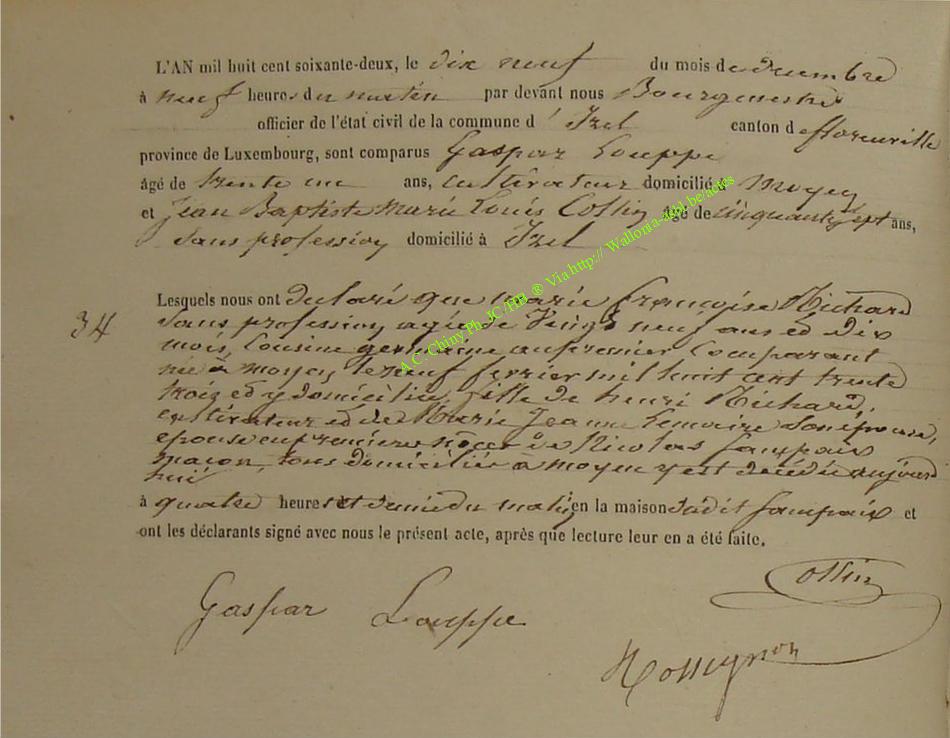 L'AN mil huit cent soixante-deux, le dix neuf du mois de decembre
à neuf heures du matin par devant nous Bourgmestre
officier de l'état civil de la commune d'Izel canton de florenville
province de Luxembourg, sont comparus Gaspar Louppe
âgé de trente un ans, cultivateur domicilié à moyen
et Jean Baptiste Marie Louis Collin âgé de cinquante sept ans,
sans profession domicilié à Izel
Lesquels nous ont declaré que marie françoise Richard
34
sans profession agée de Vingt neuf ans et dix
mois, Cousine germaine au premier Comparant
née à moyen le neuf fevrier mil huit cent trente
trois et y domiciliée, fille de henri Richard,
cultivateur et de Marie Jeanne Lemoine son épouse,
epouse en premières noces de Nicolas Sampaix
maçon, tous domiciliés à moyen y est décédée aujourd
hui
à quatre heures et demie du matin en la maison dudit Sampaix et
ont les déclarants signé avec nous le présent acte, après que lecture leur en a été faite.
Collin
Gaspar Louppe
Rossignon
A.C. Chiny Ph. JC. ® Via http:// Wallonia-asbl.be/actes